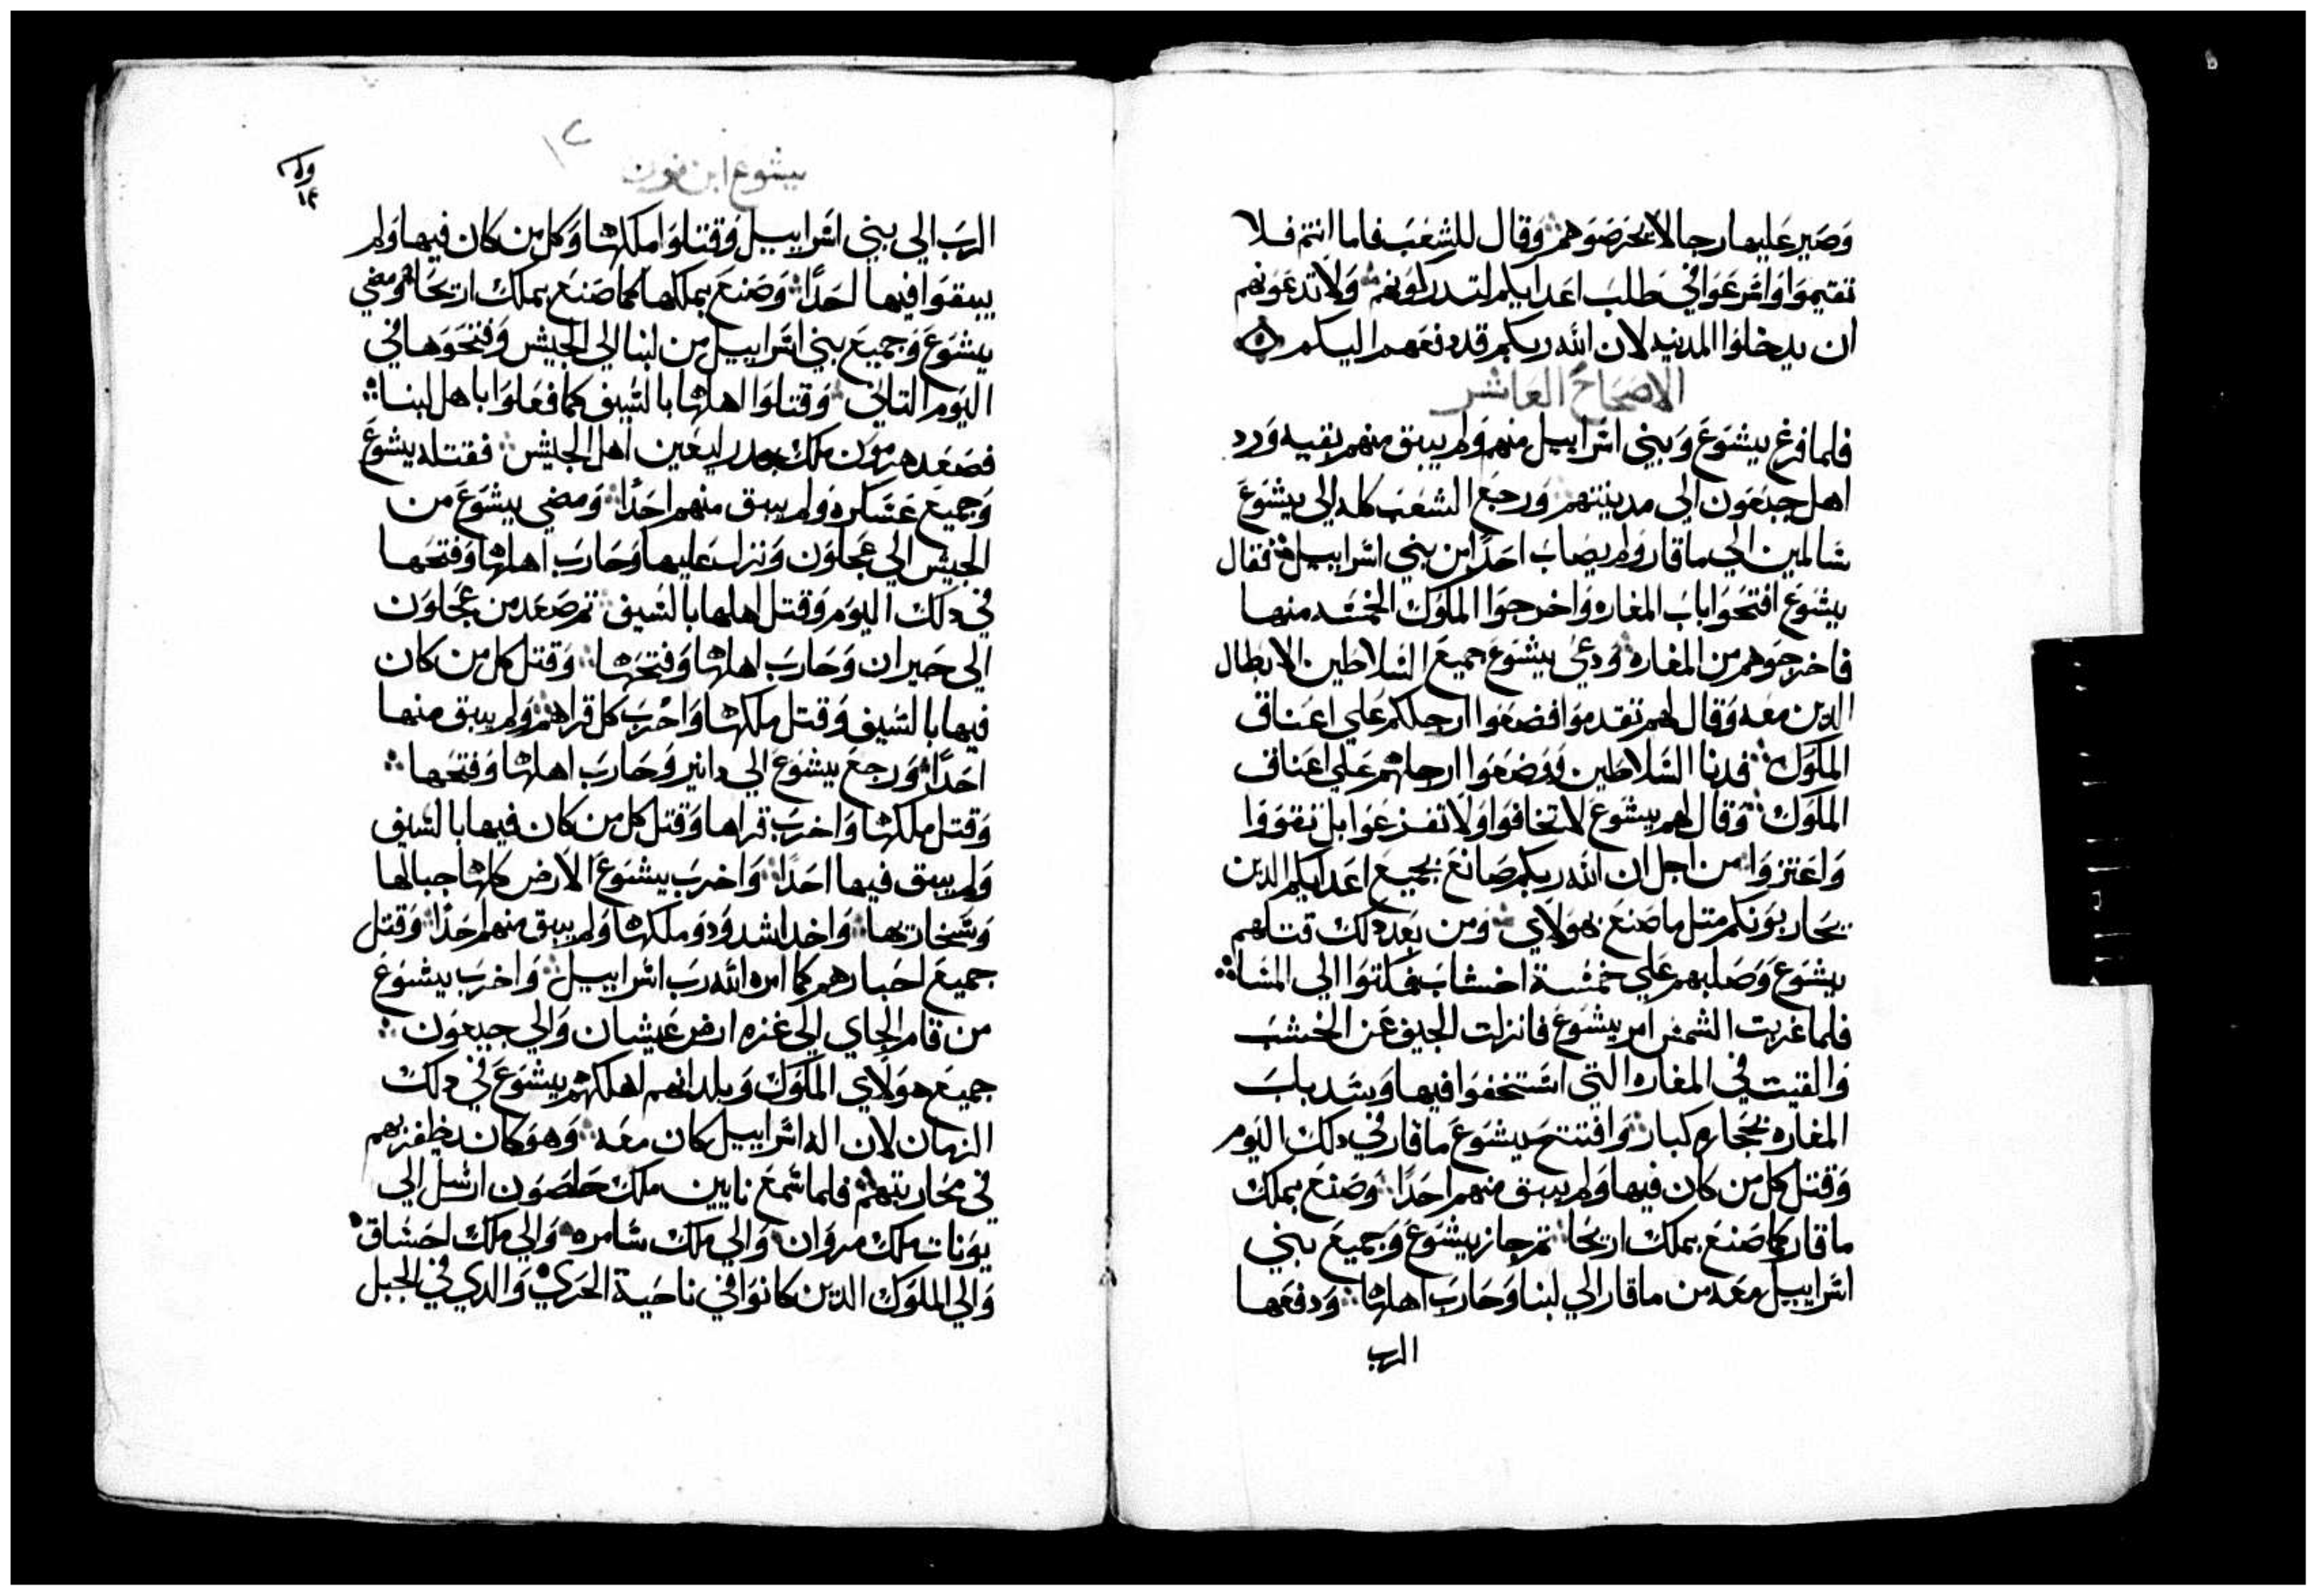 وصير عليها رجالا يحرصوهم وقال للشعب فاما انتم فلا
تقيموا واسرعوا في طلب اعدايكم لتدركونهم ولا تدعونهم
ان يدخلوا المدينه لان الله ربكم قد دفعهم اليكم
الاصحاح العاشر
فلما فرغ يشوع وبيني اسراييل منهم ولم يبق منهم بقيه ورد
اهل جبعون الى مدينتهم ورجع الشعب كله الى يشوع
سالمين الي ماقار ولم يصاب احدا من بني اسراييل فقال
يشوع افتحوا باب المغاره واخرجوا الملوك الخمسه منها
فاخرجوهم من المغاره ودعي يشوع جميع السلاطين الابطال
الدين معه وقال لهم تقدموا فضعوا ارجلكم علي اعناق
الملوك فدنا السلاطين ووضعوا ارجلهم علي اعناق
الملوك وقال لهم يشوع لا تخافوا ولا تفزعوا بل تقووا
واعتزوا من اجل ان الله ربكم صانع بجميع اعدايكم الدين
يحاربونكم متل ما صنع بهولاي ومن بعد دلك قتلهم
يشوع وصلبهم علي خمسة اخشاب فمكتوا الي المسا
فلما غربت الشمس امر يشوع فانزلت الجيف عن الخشب
والقيت في المغاره التي استخفوا فيها وسد باب
المغاره بحجاره كبار وافتتح يشوع ماقار في دلك اليوم
وقتل كل من كان فيها ولم يبق منهم احدا وصنع بملك
ماقار كما صنع بملك اريحا تم جاز يشوع وجميع بني
اسراييل معه من ماقار الي لبنا وحارب اهلها ودفعها
الرب
يشوع ابن نون
الرب الي بني اسراييل وقتلوا ملكها وكل من كان فيها ولم
يبقوا فيها احدا وصنع بملكها كما صنع بملك اريحا ومضي
يشوع وجميع بني اسراييل من لبنا الي الجيش وفتحوها في
اليوم التاني وقتلوا اهلها بالسيف كما فعلوا باهل لبنا
فصعد هرمون ملك ليعين اهل الجيش فقتله يشوع
وجميع عسكره ولم يبق منهم احدا ومضي يشوع من
الجيش الي عجلون ونزل عليها وحارب اهلها وفتحها
في دلك اليوم وقتل اهلها بالسيف تم صعد من عجلون
الي حبران وحارب اهلها وفتحها وقتل كل من كان
فيها بالسيف وقتل ملكها واخرب كل قراهم ولم يبق منها
احدا ورجع يشوع الي دانير وحارب اهلها وفتحها
وقتل ملكها واخرب قراها وقتل كل من كان فيها بالسيف
ولم يبق فيها احدا واخرب يشوع الارض كلها جبالها
وسخاريها واخد اشدود وملكها ولم يبق منهم احدا وقتل
جميع احبارهم كما امره الله رب اسراييل واخرب يشوع
من قام الجاي الي غزه ارض عيشان والي جبعون
جميع هولاي الملوك وبلدانهم اهلكهم يشوع في دلك
الزمان لان اله اسراييل كان معه وهو كان يظفر بهم
في محاربتهم فلما سمع نابين ملك حلصون ارسل الي
يونات ملك مروان والي ملك سامره والي ملك احشاق
والي الملوك الدين كانوا في ناحية الحري والدي في الجبل